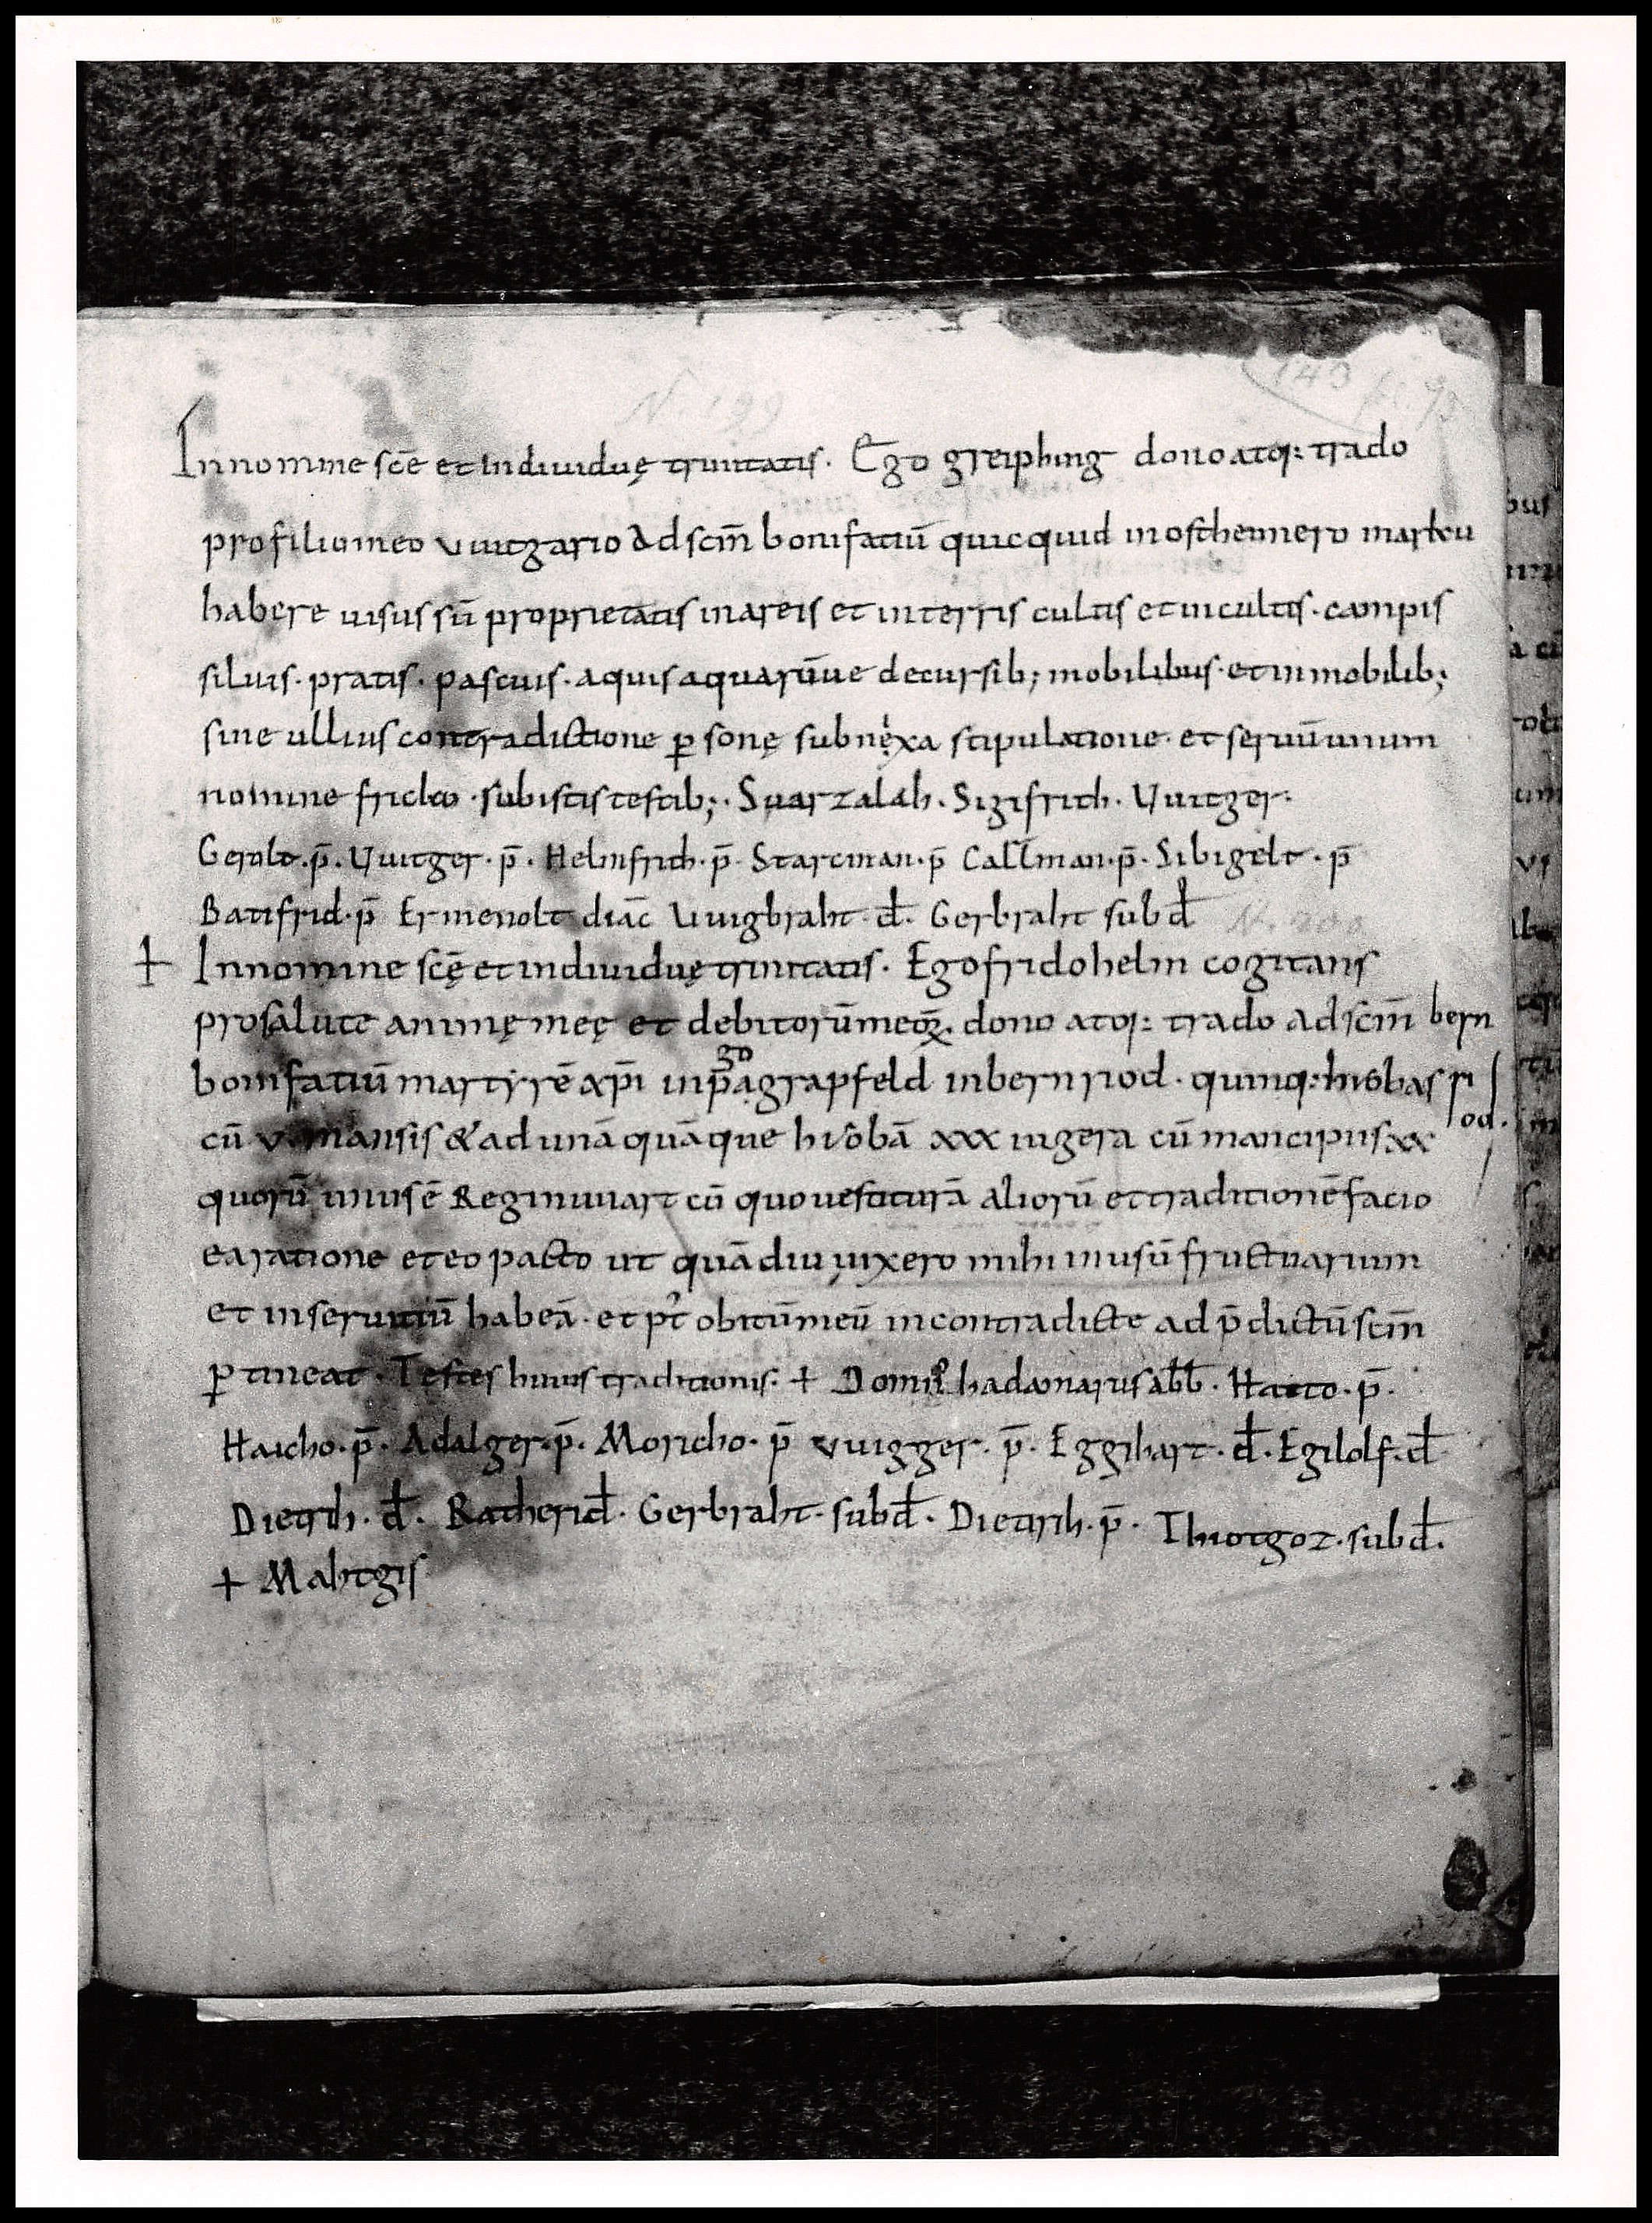 N. 199
143
Innomine scē et individuę trinitatis. Ego greiphing dono atq: trado
pro filio meo vuitgario Ad scm̄ bonifatiū quicquid in ostheimero marku
habere uisus sū proprietatis in areis et in terris cultis et incultis. campis
siluis. pratis. pascuis. aquis aquarūue decursib; mobilibus. et inmobilib;
sine ullius contradictione p̱ sonę subnęxa stipulatione. et seruū unum
nomine fridco. sub istis testib;. Suarzalah. Sigifrith. Vuitger.
Gerolt. p̄. Vuitger. p̄. Helmfrich. p̄. Starcman. p̄ Callman. p̄. Sibigelt. p̄
Batifrid. p̄ Ermenolt diac̄ Vuigbraht. đ. Gerbraht subđ N. 200
+ Innomine scę̄ et individuę trinitatis. Ego fridohelm cogitans
pro salute animę meę et debitorū meoꝝ. dono atq: trado ad scm̄ bern
bonifatiū martyrē xp̄i in pago grapfeld in bernriod. quinq: huobas ri
od.
cū v. mansis & ad unā quāque huobā xxx iugera cū mancipiis xx
quorū unus ē Reginuuart cū quo vestiturā aliorū et traditionē facio
ea ratione et eo pacto ut quādiu vixero mihi in usū fructuarium
et in seruitiū habeā. et pt̄ obitū meū incontradicte ad p̄dictū scm̄
p̱tineat. Testes huius traditionis. + Domn̄ hadamarus abb̄. Hatto. p̄.
Haicho. p̄. Adalger. p̄. Moricho. p̄ vuigger. p̄. Eggihart. đ. Egilolf. đ
Dietrih. đ. Ratheri đ. Gerbraht. subđ. Dietrih. p̄. Thiotgoz. subđ.
+ Mahtgis